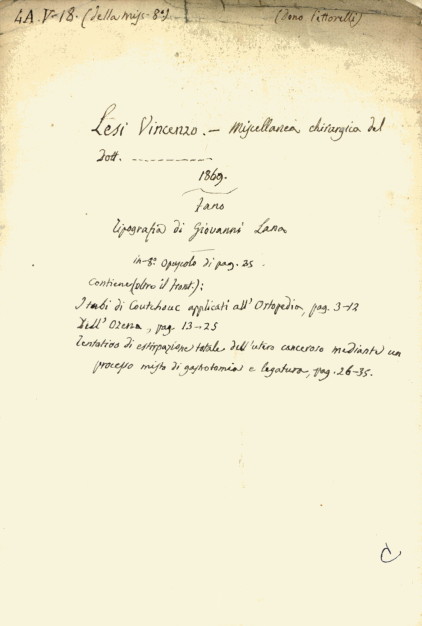 4A.V-18. (della misc-8ª) (Dono Vettorelli)
Lesi Vincenzo. — Miscellanea chirurgica del
Dott. ------------
1869.
Fano
Tipografia di Giovanni Lana
in-8º opuscolo di pag. 35.
Contiene (oltre il front.):
I tubi di Coutchouc applicati all'Ortopedia, pag. 3-12
Dell'Ozena, pag. 13-25
Tentativo di estirpazione totale dell'utero canceroso mediante un
processo misto di gastrotomia e legatura, pag. 26-35.
C